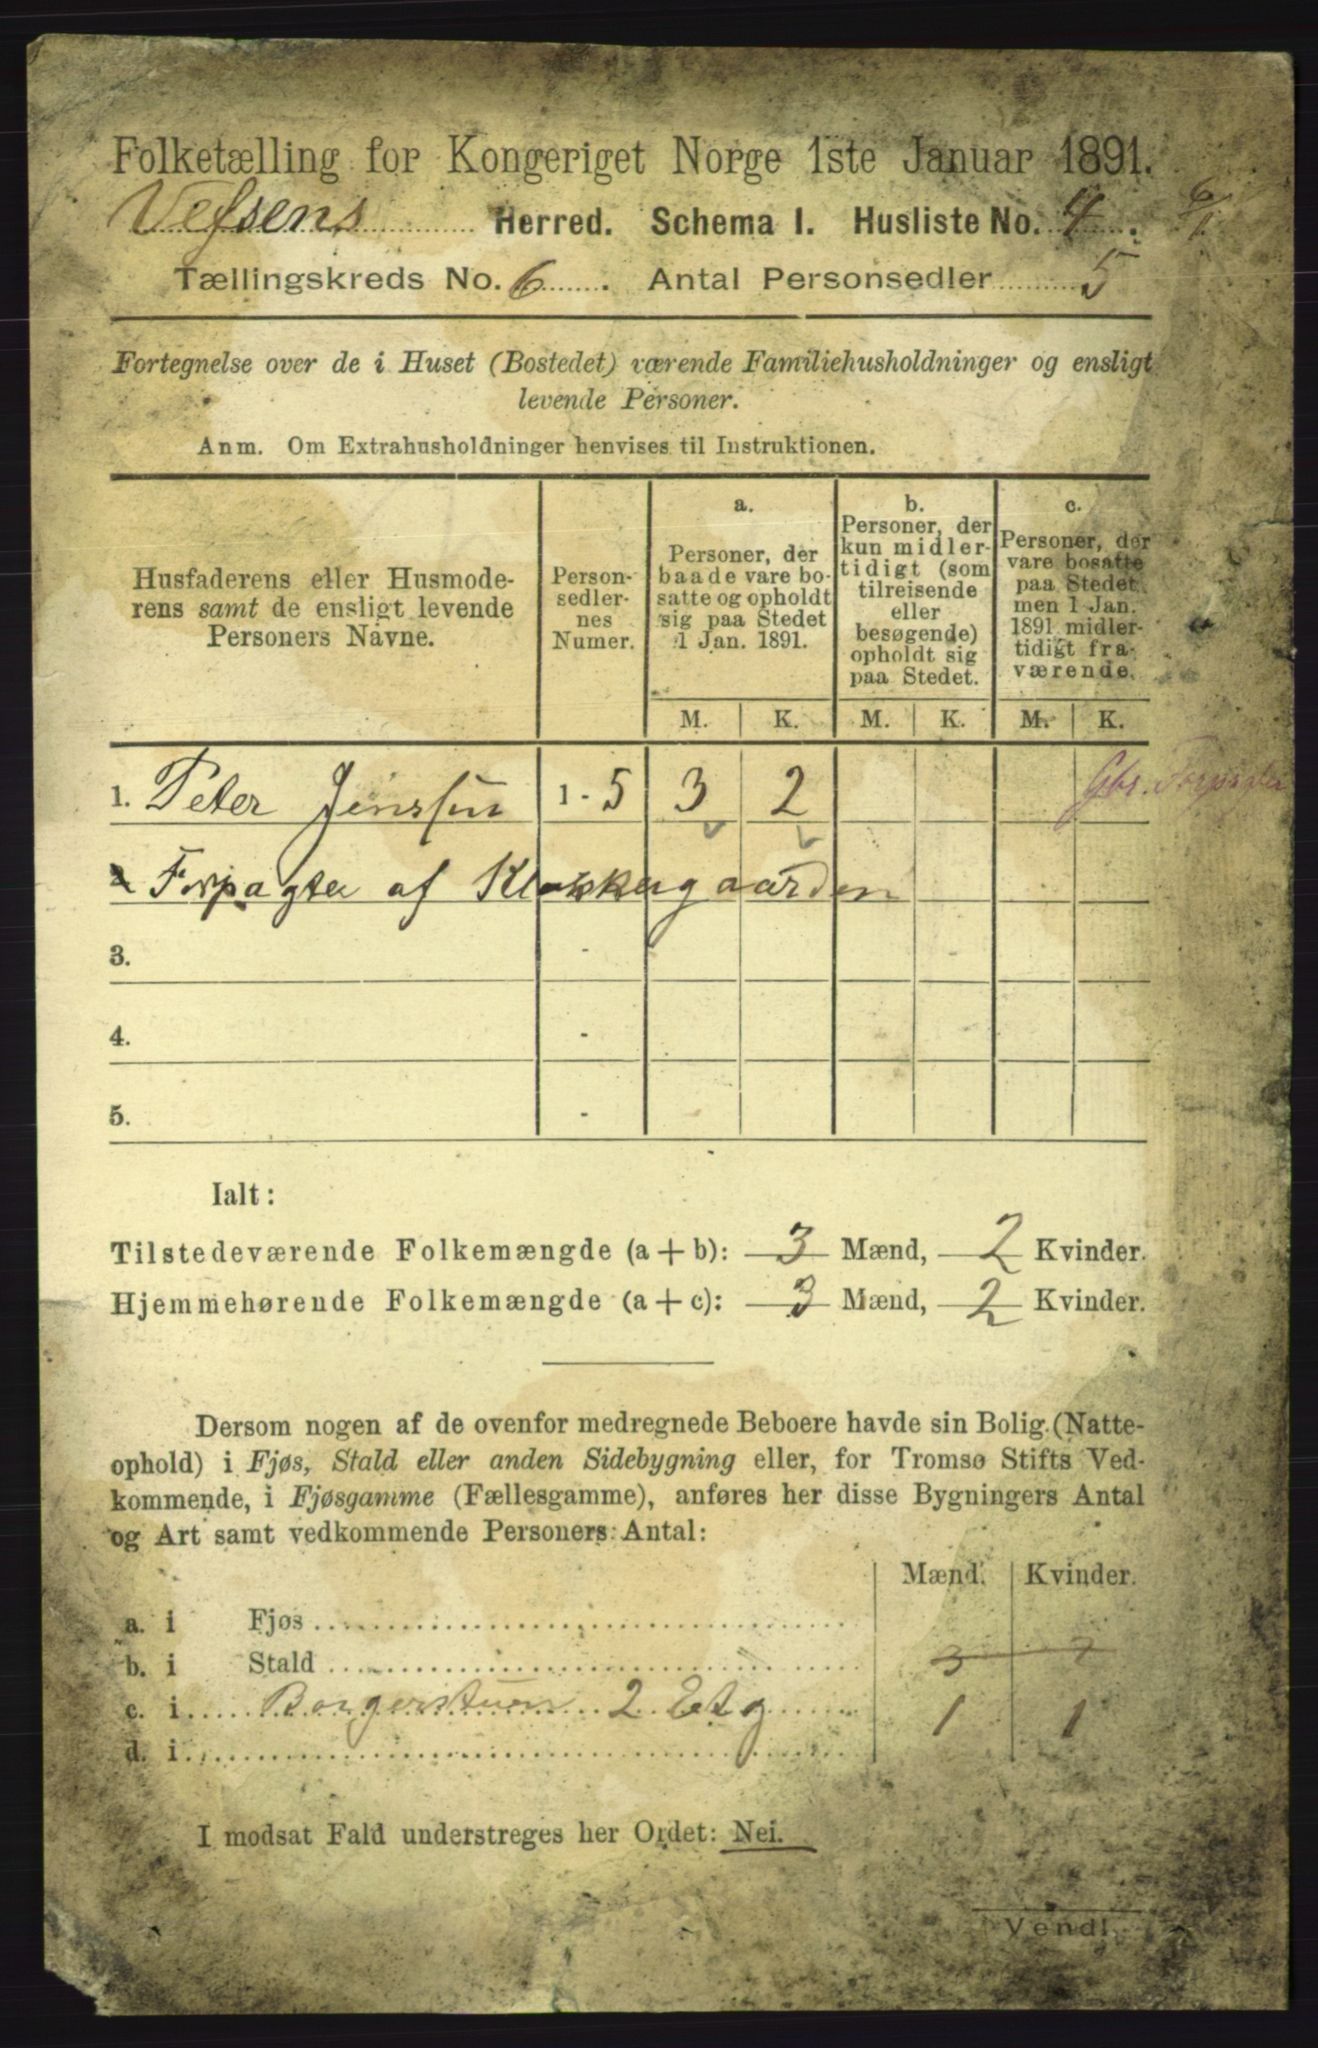 Folketælling for Kongeriget Norge 1ste Januar 1891.
Vefsens Herred. Schema I. Husliste No. 4. 6/1
Tællingskreds No. 6. Antal Personsedler 5
Fortegnelse over de i Huset (Bostedet) værende Familiehusholdninger og ensligt
levende Personer.
Anm. Om Extrahusholdninger henvises til Instruktionen.
Husfaderens eller Husmode-
rens samt de ensligt levende
Personers Navne.
Person-
sedler-
nes
Numer.
a.
Personer, der
baade vare bo-
satte og opholdt
sig paa Stedet
1 Jan. 1891.
b.
Personer, der
kun midler-
tidigt (som
tilreisende
eller
besøgende)
opholdt sig
paa Stedet.
c.
Personer, der
vare bosatte
paa Stedet
men 1 Jan.
1891 midler-
tidigt fra-
værende.
M. K. M. K. M. K.
1. Peter Jenssen 1 - 5 3 2 Gbr. Forpagter
2 Forpagter af Klokkergaarden
3. -
4. -
5. -
Ialt:
Tilstedeværende Folkemængde (a + b): 3 Mænd, 2 Kvinder.
Hjemmehørende Folkemængde (a + c): 3 Mænd, 2 Kvinder.
Dersom nogen af de ovenfor medregnede Beboere havde sin Bolig (Natte-
ophold) i Fjøs, Stald eller anden Sidebygning eller, for Tromsø Stifts Ved-
kommende, i Fjøsgamme (Fællesgamme), anføres her disse Bygningers Antal
og Art samt vedkommende Personers Antal:
Mænd. Kvinder.
a. i Fjøs
b. i Stald 3 2
c. i Borgerstuen 2 Etg 1 1
d. i
I modsat Fald understreges her Ordet: Nei.
Vendl.